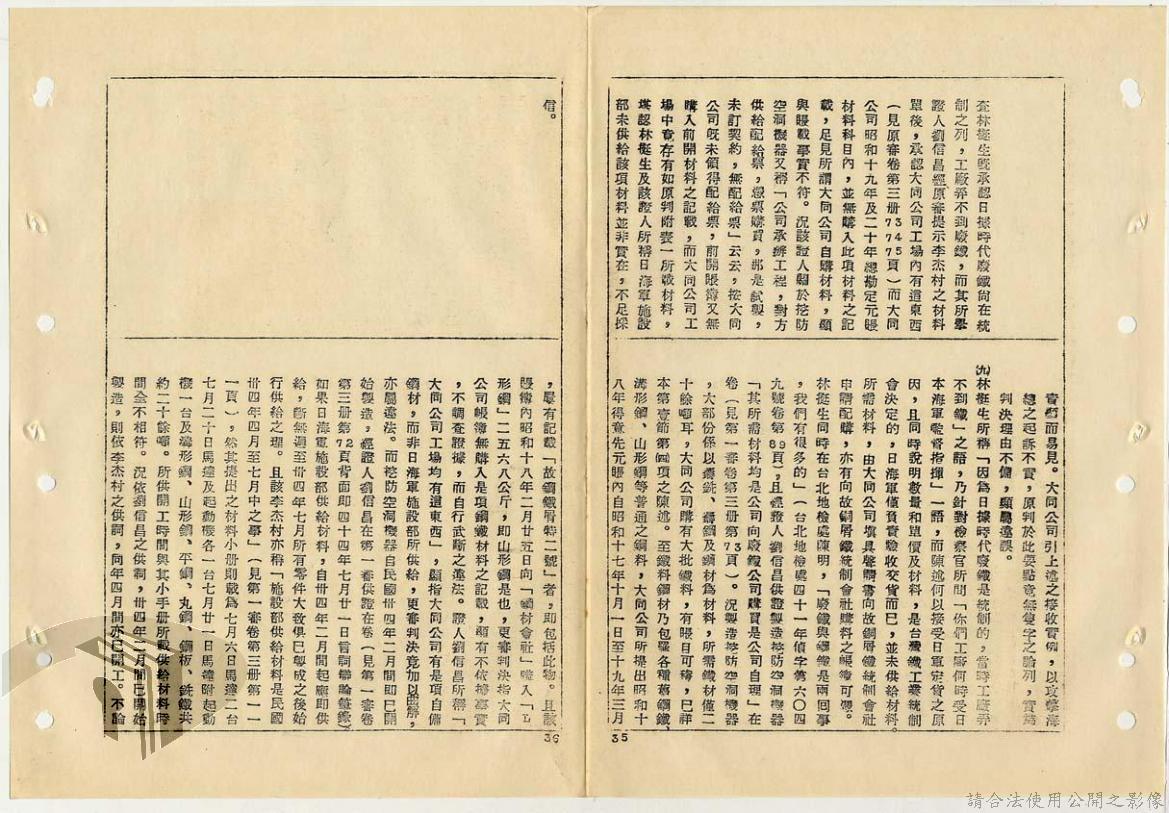 查林挺生既承認日據時代廢鐵尚在統
制之列，工廠弄不到廢鐵，而其所舉
證人劉信昌經原審提示李杰村之材料
單後，承認大同公司工場內有這東西
（見原審卷第三册345
777頁）而大同
公司昭和十九年及二十年總勘定元賬
材料科目內，並無購入此項材料之記
載，足見所謂大同公司自購材料，顯
與賬載事實不符。況該證人關於挖防
空洞機器又稱「公司承辦工程，對方
供給配給票，憑票購買，那是試製，
未訂契約，無配給票」云云，按大同
公司既未領得配給票，前開賬簿又無
購入前開材料之記載，而大同公司工
場中竟存有如原判附表一所載材料，
堪認林挺生及該證人所稱日海軍施設
部未供給該項材料並非實在，不足採
實顯而易見。大同公司引上述之接收實例，以攻擊海
總之起訴不實，原判於此要點竟無隻字之論列，實為
判決理由不備，顯屬違誤。
(九)林挺生所稱「因為日據時代廢鐵是統制的，當時工廠弄
不到鐵」之語，乃針對檢察官所問「你們工廠何時受日
本海軍監督指揮」一語，而陳述何以接受日軍定貨之原
因，且同時說明數量和單價及材料，是台灣鐵工業統制
會決定的，日海軍僅負責驗收交貨而已，並未供給材料。
所需材料，由大同公司填具聲請書向故銅屑鐵統制會社
申請配購，亦有向故銅屑鐵統制會社購料之帳簿可稽。
林挺生同時在台北地檢處陳明，「廢鐵與鋼鐵是兩回事
，我們有很多的」（台北地檢處四十一年偵字第六〇四
九號卷第89頁），且經證人劉信昌供證製造挖防空洞機器
「其所需材料均是公司向廢鐵公司購買是公司自理」在
卷（見第一審卷第三册第73頁）。況製造挖防空洞機器
，大部份係以鑄銑、鑄鋼及鋼材為材料，所需鐵材僅二
十餘噸耳，大同公司購有大批鐵料，有賬目可稽，已詳
本第壹節第(四)項之陳述。至鐵料鋼材乃包羅各種舊鋼鐵、
溝形鋼、山形鋼等普通之鋼料，大同公司所提出昭和十
八年得意先元賬內自昭和十七年十月一日至十九年三月
35
信。
，屢有記載「故鋼鐵屑特二號」者，即包括此物。且該
賬簿內昭和十八年二月廿五日向「鋼材會社」購入「L
形鋼」二五六八公斤，即山形鋼是也，更審判決指大同
公司帳簿無購入是項鋼鐵材料之記載，顯有不依據事實
，不調查證據，而自行武斷之違法。證人劉信昌所稱「
大同公司工場均有這東西」，顯指大同公司有是項自備
鋼材，而非日海軍施設部所供給，更審判決竟加以曲解，
亦屬違法。而挖防空洞機器自民國卅四年二月間即已開
始製造，經證人劉信昌在第一審供證在卷（見第一審卷
第三册第72頁背面即四十四年七月廿一日言詞辯論筆錄）
如果日海軍施設部供給材料，自卅四年二月間起應即供
給，斷無遲至卅四年七月所有零件大致俱已製成之後始
行供給之理。且該李杰村亦稱「施設部供給材料是民國
卅四年四月至七月中之事」（見第一審卷第三册第一一
一頁），然其提出之材料小册則載為七月六日馬達二台
七月二十日馬達及起動機各一台七月廿一日馬達附起動
機一台及溝形鋼、山形鋼、平鋼、丸鋼、鋼板、銑鐵共
約二十餘噸。所供開工時間與其小手册所載供給材料時
間全不相符。況依劉信昌之供詞，卅四年二月間已開始
製造，則依李杰村之供詞，同年四月間亦已開工。不論
36
請合法使用公開之影像